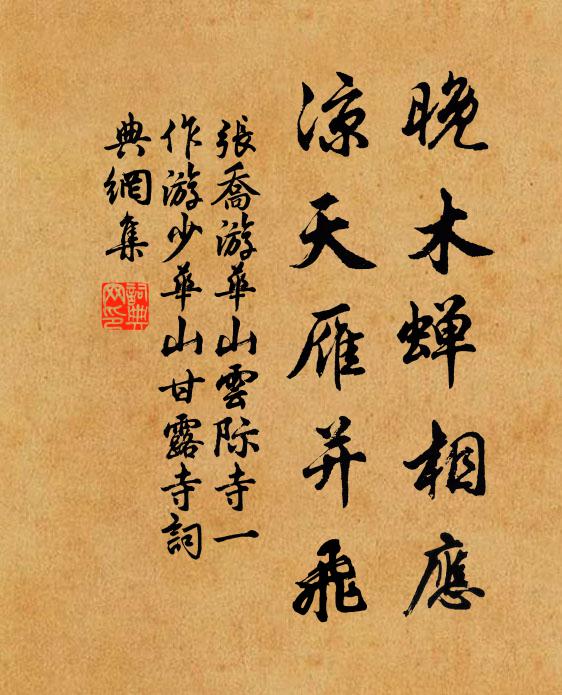 晚木蝉相應
凉天雁并飛
張喬游華山雲际寺一
作游少華山甘露寺詞
典網集
詞典網印